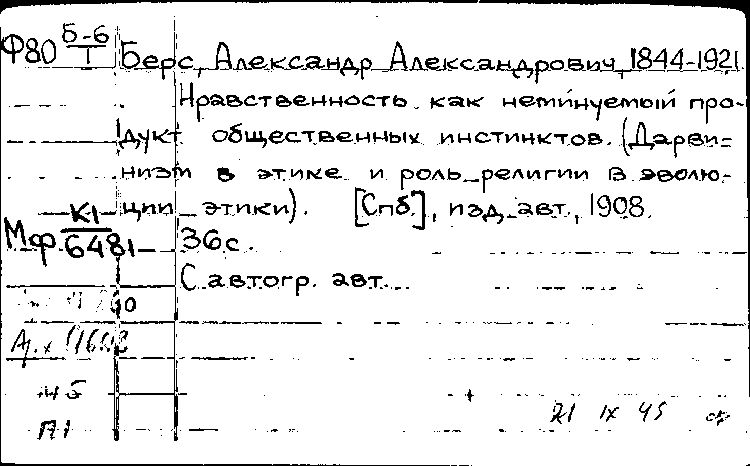 Ф80 Б-6/1 Берс, Александр Александрович, 1844-1921.
Нравственность как неминуемый про-
дукт общественных инстинктов. (Дарви-
низм в этике и роль религии в эволю-
ции этики). [Спб.], изд. авт., 1908.
Мф К1/6481 36с.
С автогр. авт.
21 IX 45